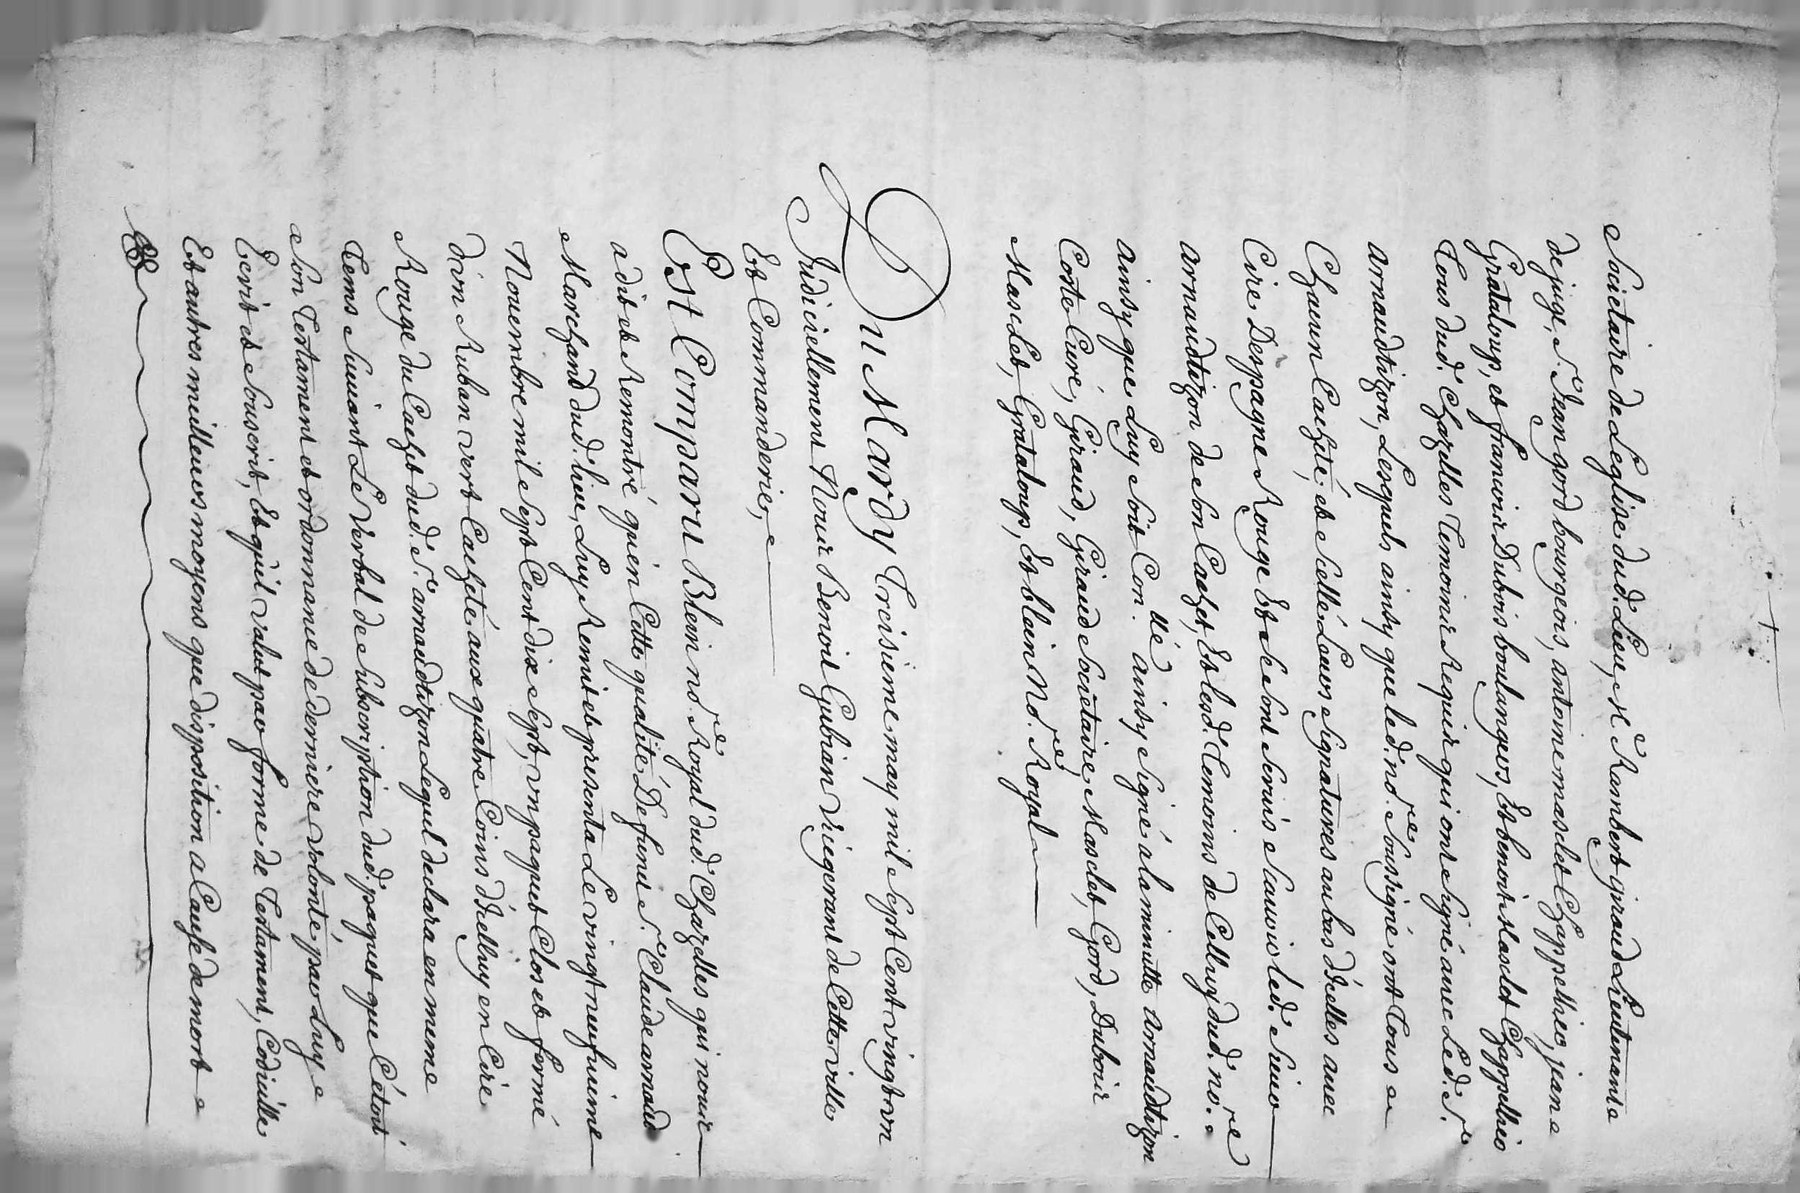 Societaire de Leglise dud.t Lieu, M.e Rambert giraud Lieutenant
de juge, S.r Jean gord bourgeois, antoine masclet Chappellier, jean
Grataloup, et francois Dubois boulangers, Et benoit Masclet Chappellier
Tous dud.t Chazelles Temoins Requis qui ont signé avec Led.t S.r
arnaudtizon, Lesquels ainsy que led.t no.re soussigné ont tous
Chacun Cacheté, et scellé Leurs signatures au bas d'Icelles avec
Cire Despagne Rouge Et se sont servis scavoir led.t sieur
arnaudtizon de son Cachet, Et led.t Temoins de Celluy dud.t no.re
ainsy que Luy soit Con.llé ainsy signé a la minutte arnaudtizon
Coste Curé, Giraud, Giraud Societaire, Masclet, Gord, Dubois
Masclet, Grataloup, Et blein No.re Royal
Du Mardy Treisieme may mil sept Cent vingt un
Judiciellement Nous Benoit Gubian viegerant de Cette ville
Et Commanderie,
Est Comparu Blein no.re Royal dud.t Chazelles qui nous
a dit et Remontré qu'en Cette qualité Defunt S.r Claude arnaud
Marchand dud.t lieu, Luy Remit et presenta Le vingt neufuieme
Nouembre mil sept Cent dix sept, un paquet Clos et fermé
d'un Ruban vert Cacheté aux quatre Coins d'Icelluy en Cire
Rouge du Cachet dud.t S.r arnaudtizon Lequel declara en meme
Tems suivant Le Verbal de subscription dud.t paquet que C'étoit
son Testament et ordonnance de derniere volonté, par Luy
Ecrit et souscrit, Et qu'il valut par forme de Testament, Codicille
Et autres meilleurs moyens que disposition a Cause de mort